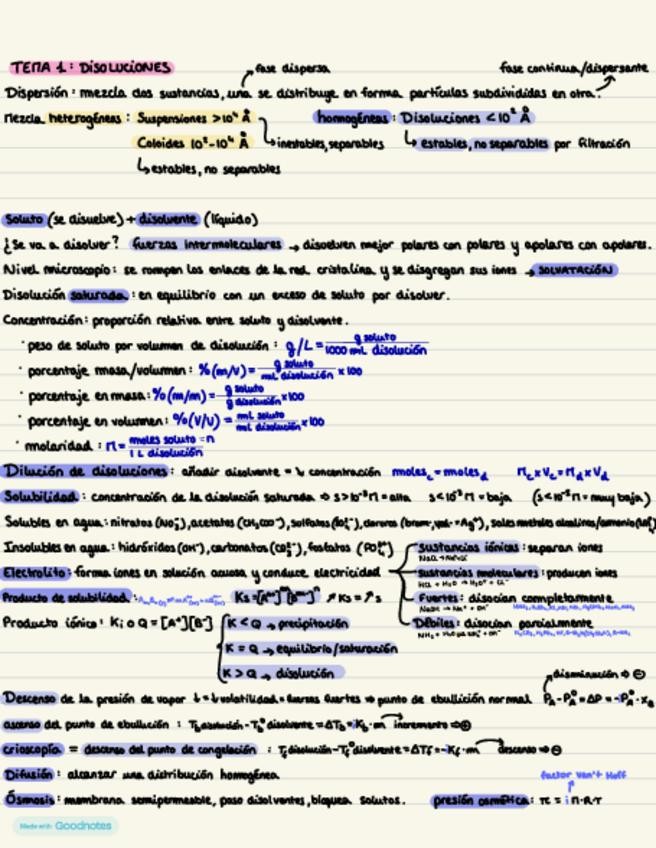 TEMA 1: DISOLUCIONES
fase dispersa
fase continua/dispersante
Dispersión: mezcla dos sustancias, una se distribuye en forma partículas subdivididas en otra.
mezcla heterogéneas: Suspensiones >10⁴ Å homogéneas: Disoluciones <10² Å
Coloides 10²-10⁴ Å
inestables, separables
estables, no separables por filtración
estables, no separables
Soluto (se disuelve) + disolvente (líquido)
¿Se va a disolver? fuerzas intermoleculares → disuelven mejor polares con polares y apolares con apolares.
Nivel microscopio: se rompen los enlaces de la red cristalina y se disgregan sus iones → SOLVATACIÓN
Disolución saturada: en equilibrio con un exceso de soluto por disolver.
Concentración: proporción relativa entre soluto y disolvente.
· peso de soluto por volumen de disolución: g/L = g soluto / 1000 mL disolución
· porcentaje masa/volumen: %(m/V) = g soluto / mL disolución x100
· porcentaje en masa: %(m/m) = g soluto / g disolución x100
· porcentaje en volumen: %(V/V) = mL soluto / mL disolución x100
· molaridad: M = moles soluto = n / 1 L disolución
Dilución de disoluciones: añadir disolvente = ↓ concentración moles_c = moles_d M_c x V_c = M_d x V_d
Solubilidad: concentración de la disolución saturada ⇒ s>10⁻²M = alta s<10⁻²M = baja (s<10⁻⁵M = muy baja)
Solubles en agua: nitratos (NO₃⁻), acetatos (CH₃COO⁻), sulfatos (SO₄²⁻), cloruros
Insolubles en agua: hidróxidos (OH⁻), carbonatos (CO₃²⁻), fosfatos (PO₄³⁻)
sustancias iónicas: separan iones
Electrolito: forma iones en solución acuosa y conduce electricidad
sustancias moleculares: producen iones
Fuertes: disocian completamente
Débiles: disocian parcialmente
Producto de solubilidad: Ks = ↗Ks = ↗s
Producto iónico: Ki o Q = [A⁺][B⁻]
K < Q → precipitación
K = Q → equilibrio/saturación
K > Q → disolución
disminución → ⊖
Descenso de la presión de vapor ↓ = ↓ volatilidad = fuerzas fuertes ⇒ punto de ebullición normal P_A - P_A° = ΔP = -iP_A° · x_B
ascenso del punto de ebullición: T_b disolución - T_b° disolvente = ΔT_b = iK_b · m incremento ⇒ ⊕
crioscopía = descenso del punto de congelación: T_f disolución - T_f° disolvente = ΔT_f = -iK_f · m descenso ⇒ ⊖
Difusión: alcanzar una distribución homogénea.
factor Van't Hoff
Ósmosis: membrana semipermeable, paso disolventes, bloquea solutos. presión osmótica: π = i M·R·T
Made with Goodnotes